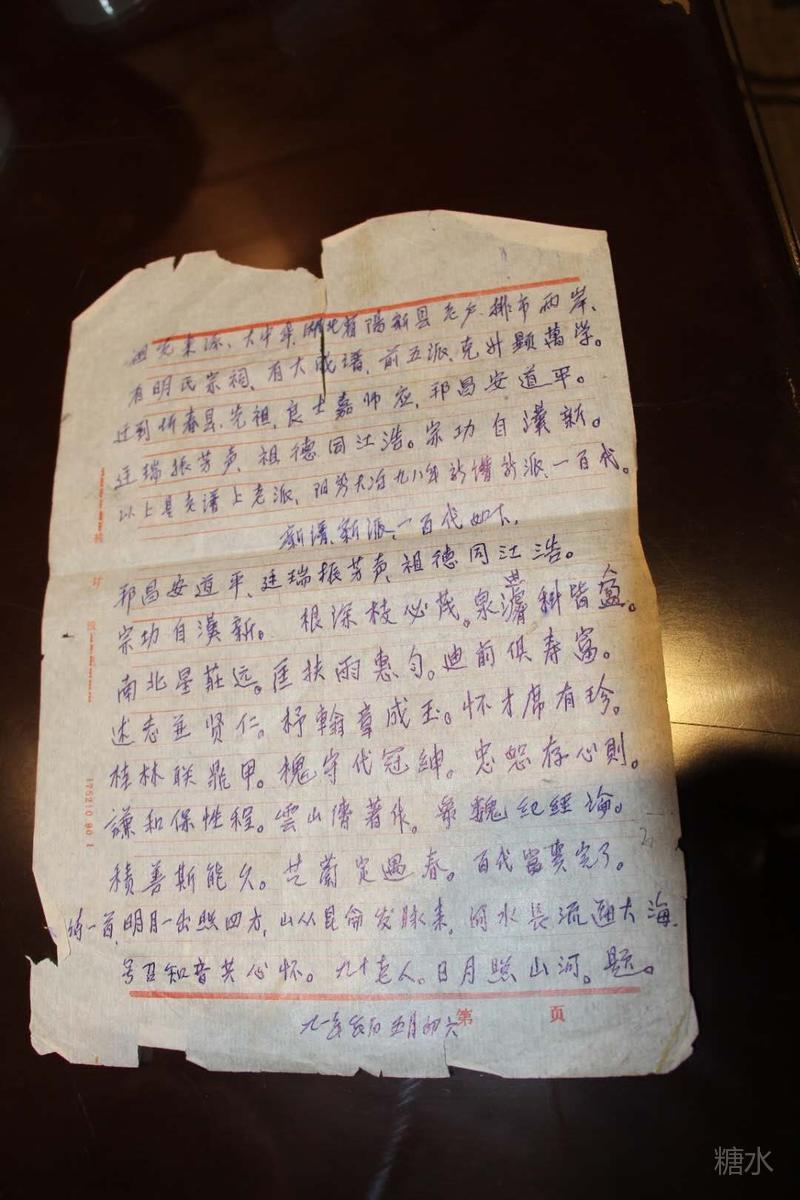 祖先来源、大中华、湖北省阳新县老户排市两岸、
有明氏宗祠、有大成谱、前五派、克升显萬学。
迁到圻春县、先祖、良士嘉师应、邦昌安道平。
廷瑞振芳声、祖德同江浩。宗功自漢新。
以上是老谱上老派、阳新大冶九八年新谱新派、一百代。
新谱、新派、一百代如下、
邦昌安道平、廷瑞振芳声、祖德同江浩。
宗功自漢新。根深枝必茂。泉 科皆盈。
南北星莊远。匡扶雨惠匀。迪前俱寿富。
述志并贤仁。抒翰章成玉。怀才席有珍。
桂林联鼎甲。槐守代冠紳。忠恕存心則。
謙和保性程。雲山傳著作。 魏纪經論。
積善斯能久。芝蘭定遇春。百代富 完了。
诗一首、明月一出照四方、山从昆侖发脉来、河水長流通大海、
号召知音共心怀。九十老人。日月照山河。题。
九一年 五月初六
第 页
175210.90.1
糖水